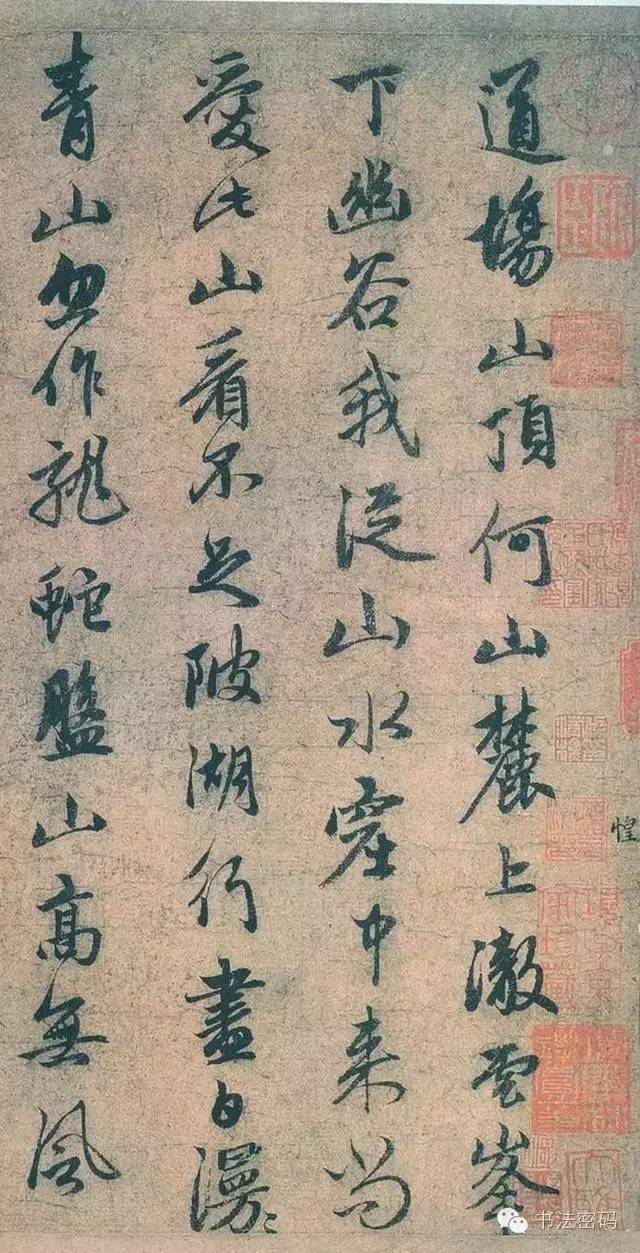 道場山頂何山麓上澈雲峯
下幽谷我從山水窟中来尚
愛此山看不足陂湖行盡白漫〻
青山忽作龍蛇盤山高無風
惶
书法密码